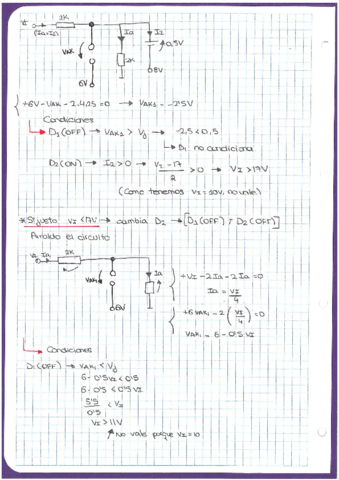 VI
2K
(Ia+I2)
VAK
Ia
I2
0,5V
2K
6V
8V
+6V - VAK - 2·4,25 = 0 → VAK1 = -2'5V
Condiciones
D1(OFF) → VAK1 > Vγ → -2,5 < 0,5
D1 no condiciona
D2(ON) → I2 > 0 → VI - 17 / 2 > 0 → VI > 17V
(Como tenemos VI = 10V, no vale)
* Si justo VI < 17V → cambia D2 → [D1(OFF) y D2(OFF)]
el circuito
VI Ia 2K
VAK1
Ia
6V
+VI - 2Ia - 2Ia = 0
Ia = VI / 4
+6 VAK1 - 2 (VI / 4) = 0
VAK1 = 6 - 0'5 VI
Condiciones
D1(OFF) → VAK1 < Vγ
6 - 0'5 VI < 0'5
6 - 0'5 < 0'5 VI
5'5 / 0'5 < VI
VI > 11V
No vale porque VI = 10